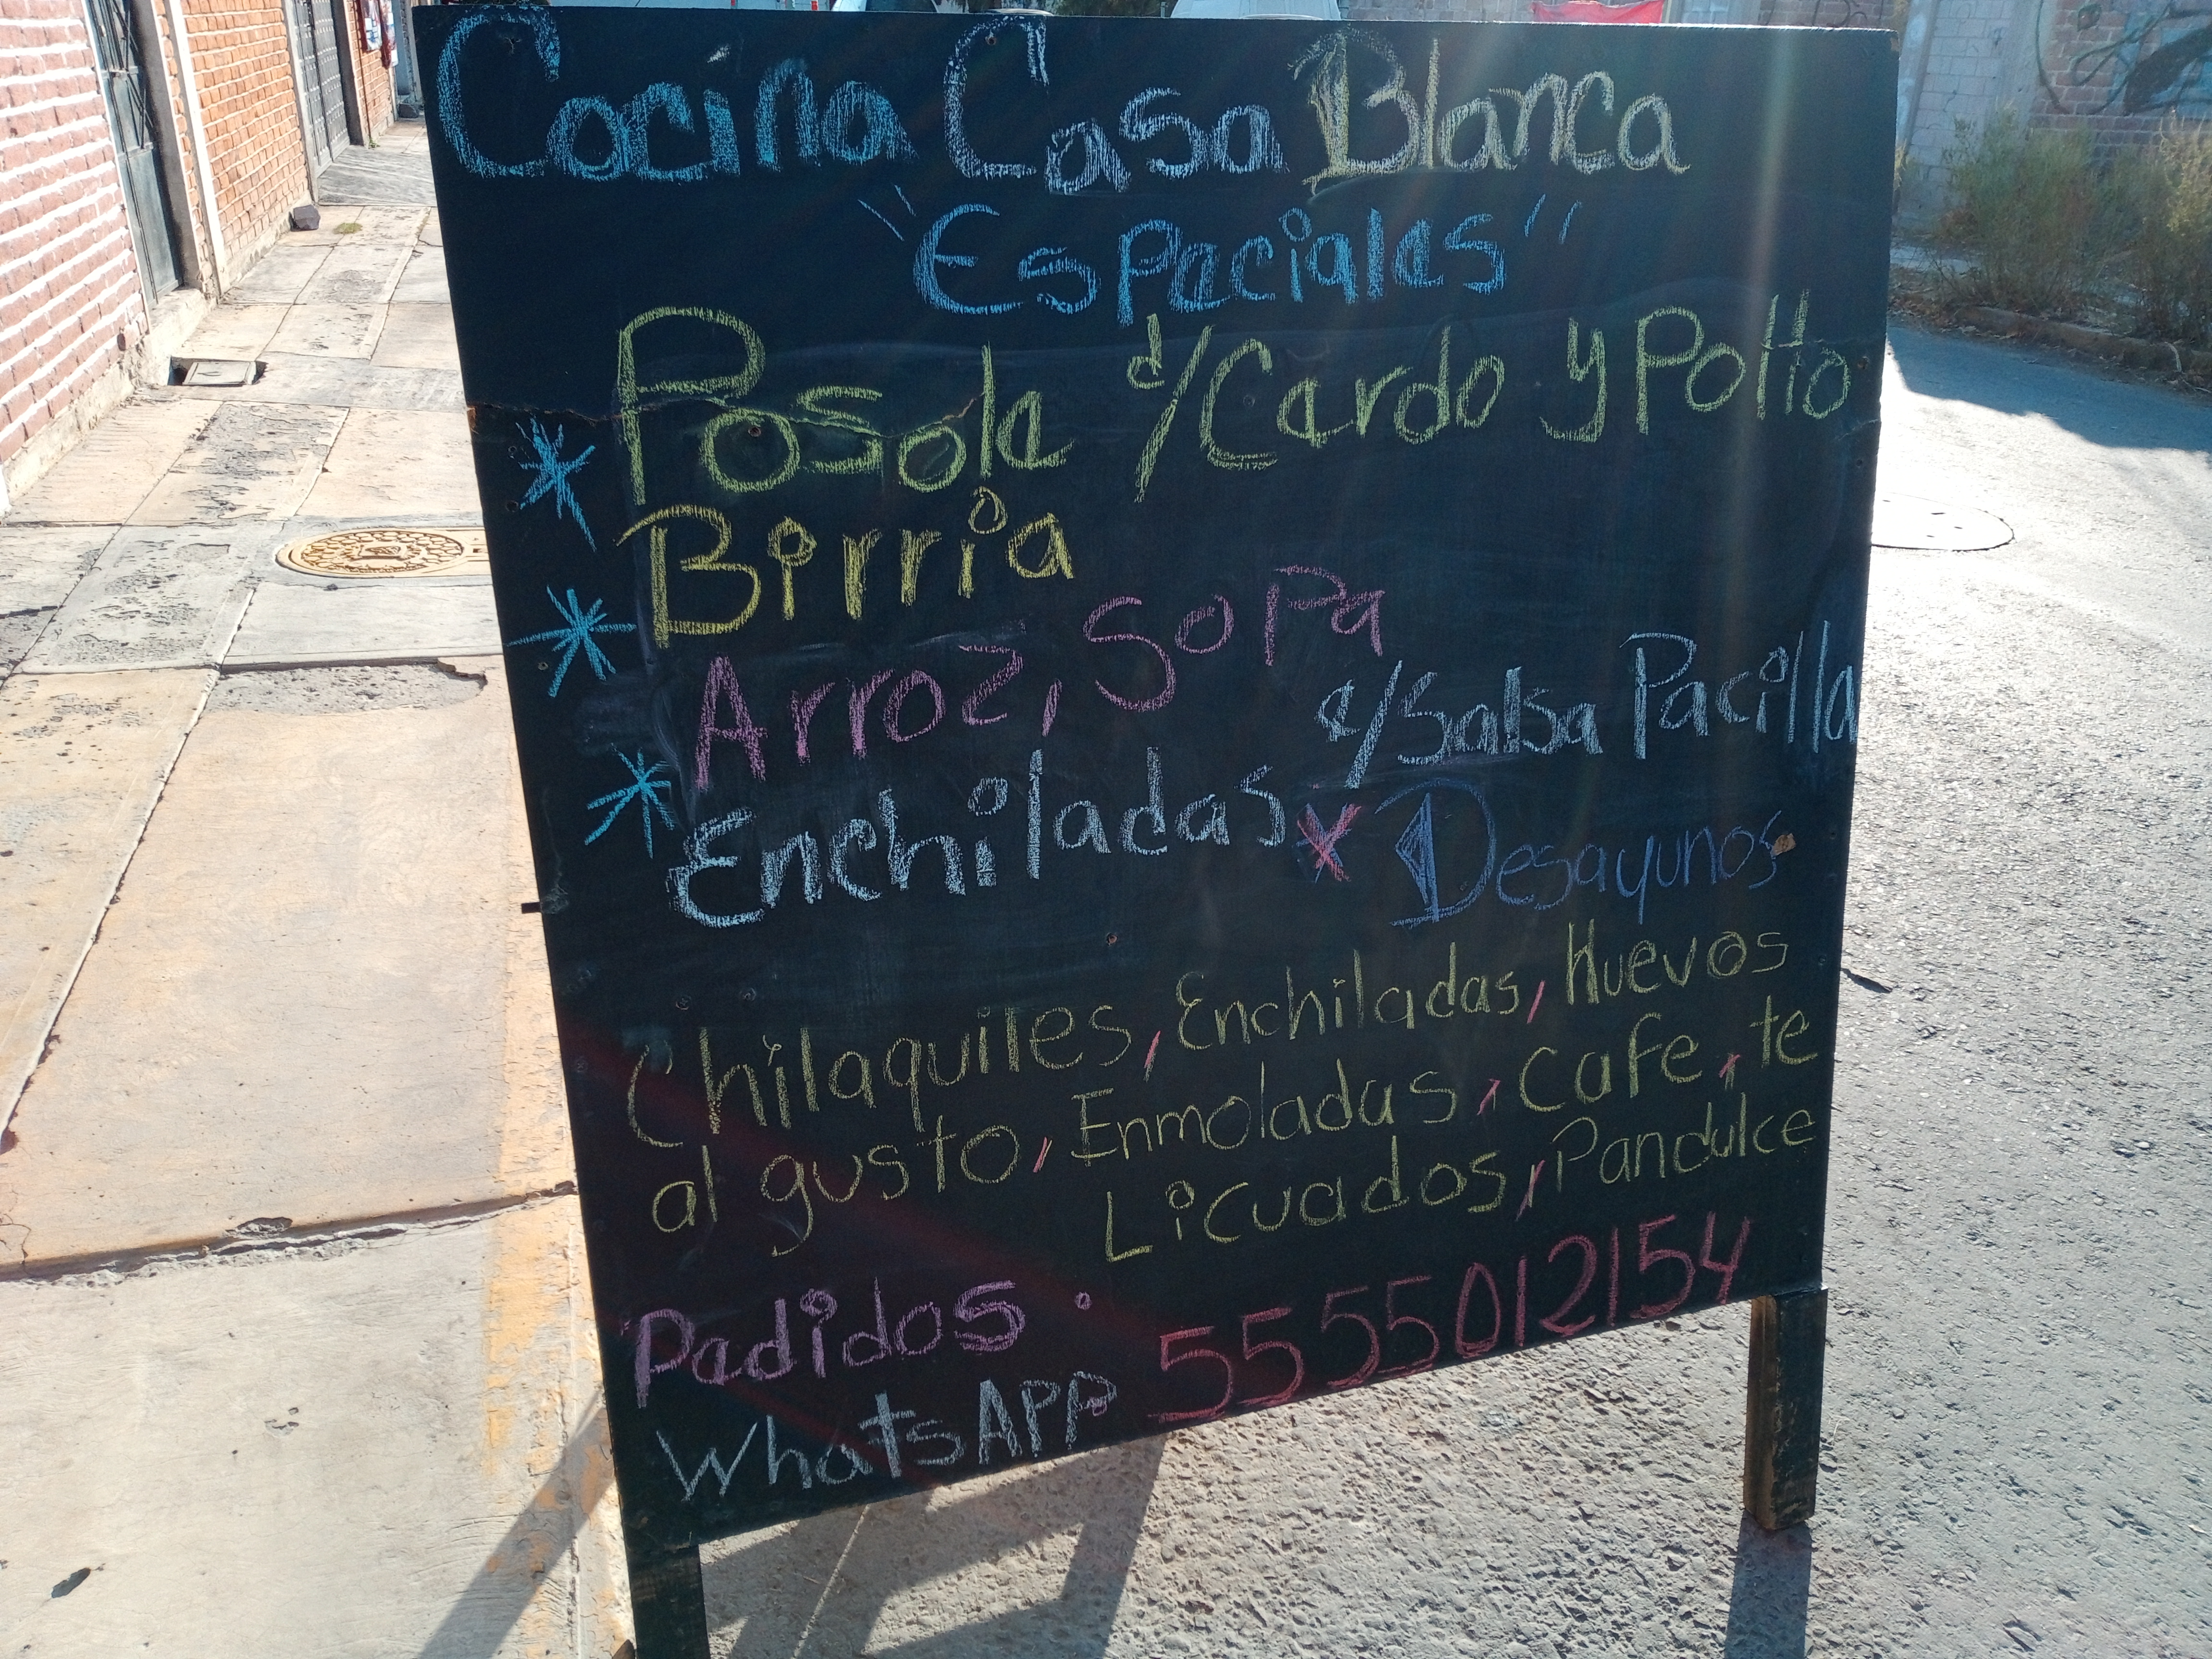 Cocina Casa Blanca
"Especiales"
Posole d/Cerdo y Pollo
Birria
Arroz, Sopa
Enchiladas d/Salsa Pacilla
x Desayunos
Chilaquiles, Enchiladas, Huevos
al gusto, Enmoladas, Cafe, te
Licuados, Pandulce
Pedidos: 5555012154
WhatsAPP